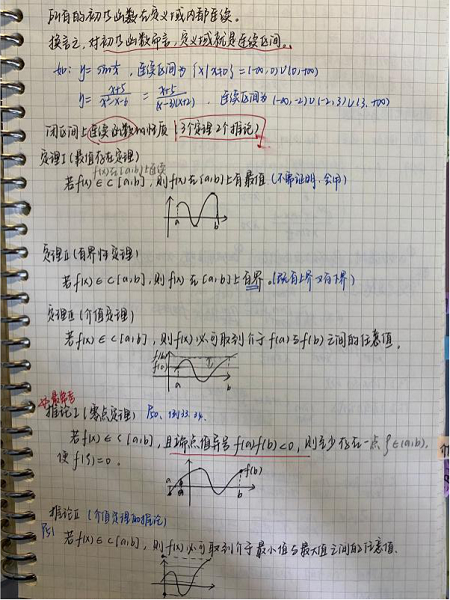 所有的初等函数在定义域内都连续。
换言之，对初等函数而言，定义域就是连续区间。
如: y= , 连续区间为 {x|x≠0} = (-∞,0)∪(0,+∞)
y= (x+5)/(x²-x-6) = (x+5)/((x-3)(x+2)) . 连续区间为 (-∞,-2)∪(-2,3)∪(3,+∞)
闭区间上连续函数的性质 (3个定理2个推论)
定理I (最值存在定理)
f(x)在[a,b]上连续
若f(x)∈C[a,b], 则f(x)在[a,b]上有最值 (不需证明,)
a b
定理II (有界性定理)
若f(x)∈C[a,b], 则f(x)在[a,b]上有界。(既有上界又有下界)
定理III (介值定理)
若f(x)∈C[a,b], 则f(x)必可取到介于f(a)与f(b)之间的任意值。
f(b)
f(a)
a b
☆最常考
推论I (零点定理) P50,
若f(x)∈C[a,b], 且端点值异号 f(a)f(b)<0, 则至少存在一点ξ∈(a,b).
使f(ξ)=0。
a f(b)
b
推论II (介值定理的推论)
P51 若f(x)∈C[a,b], 则f(x)必可取到介于最小值与最大值之间的任意值.